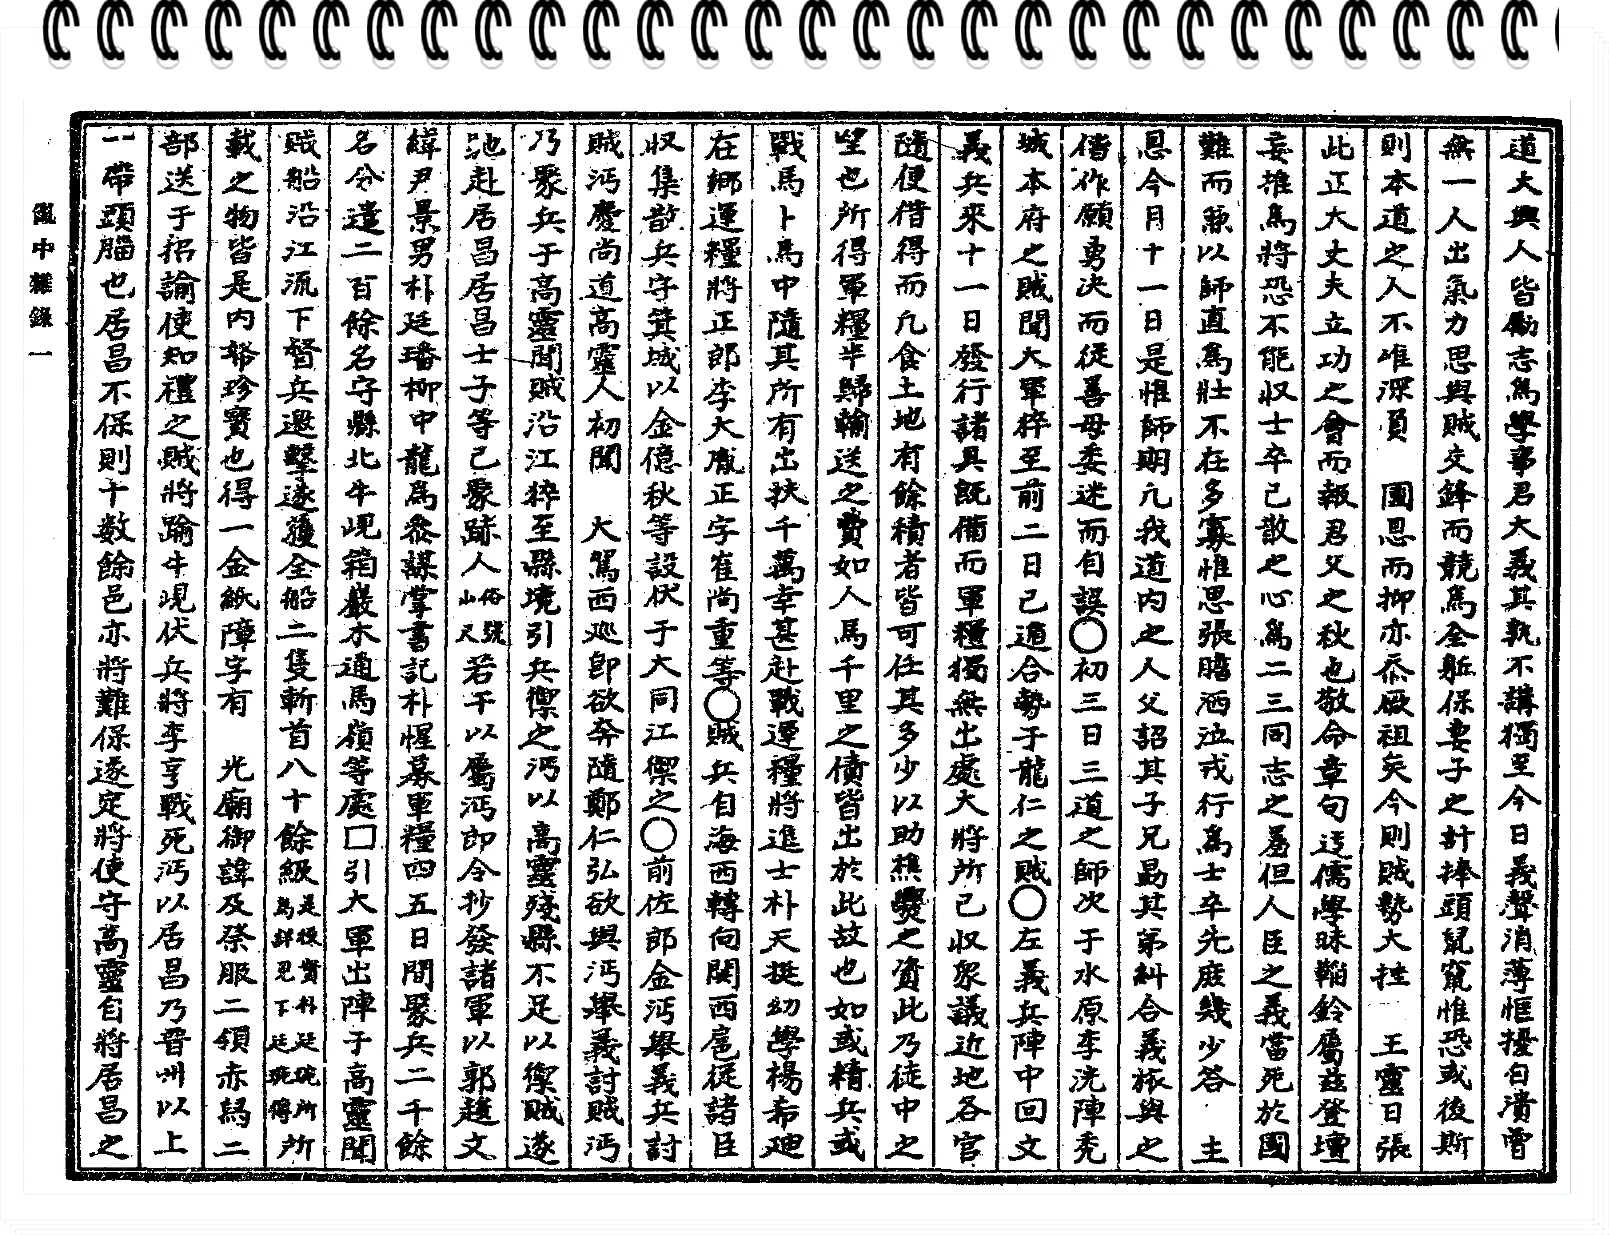 道大與人皆勵志爲學事君大義其孰不講獨至今日義聲消薄恇擾自潰曾
無一人出氣力思與賊交鋒而競爲全軀保妻子之計捧頭鼠竄惟恐或後斯
則本道之人不唯深負 國恩而抑亦忝厥祖矣今則賊勢大挫 王靈日張
此正大丈夫立功之會而報君父之秋也敬命章句迂儒學昧韜鈐屬玆登壇
妄推爲將恐不能収士卒已散之心爲二三同志之羞但人臣之義當死於國
難而兼以師直爲壯不在多寡惟思張膽洒泣戎行爲士卒先庶幾少答 主
恩今月十一日是惟師期凡我道内之人父詔其子兄勗其弟糾合義旅與之
偕作願勇决而從善毋委迷而自誤○初三日三道之師次于水原李洸陣禿
城本府之賊聞大軍粹至前二日已遁合勢于龍仁之賊○左義兵陣中回文
義兵來十一日發行諸具旣備而軍糧獨無出處大將所已収衆議近地各官
隨便借得而凡食土地有餘積者皆可任其多少以助樵爨之資此乃徒中之
望也所得軍糧半歸輸送之費如人馬千里之債皆出於此故也如或精兵或
戰馬卜馬中隨其所有出扶千萬幸甚赴戰運糧將進士朴天挺幼學楊希廸
在鄉運糧將正郎李大胤正字崔尚重等○賊兵自海西轉向関西扈從諸臣
収集散兵守箕城以金億秋等設伏于大同江禦之○前佐郎金沔舉義兵討
賊沔慶尚道高靈人初聞 大駕西巡即欲奔隨鄭仁弘欲與沔舉義討賊沔
乃聚兵于高靈聞賊沿江粹至縣境引兵禦之沔以高靈殘縣不足以禦賊遂
馳赴居昌居昌士子等已聚跡人山俗尺號若干以屬沔即令抄發諸軍以郭䞭文
緯尹景男朴廷璠柳中龍爲叅謀掌書記朴惺募軍糧四五日間聚兵二千餘
名分遣二百餘名守縣北牛峴箱巖木通馬嶺等處□引大軍出陣于高靈聞
賊船沿江流下督兵邀擊遂獲全船二隻斬首八十餘級是後實爲詳見朴廷琬下廷琬所傳所
載之物皆是内帑珍寶也得一金紙障字有 光廟御諱及祭服二領赤舄二
部送于招諭使知禮之賊將踰牛峴伏兵將李亨戰死沔以居昌乃晋州以上
一帶頭腦也居昌不保則十數餘邑亦將難保遂定將使守高靈自將居昌之
亂中雜錄一